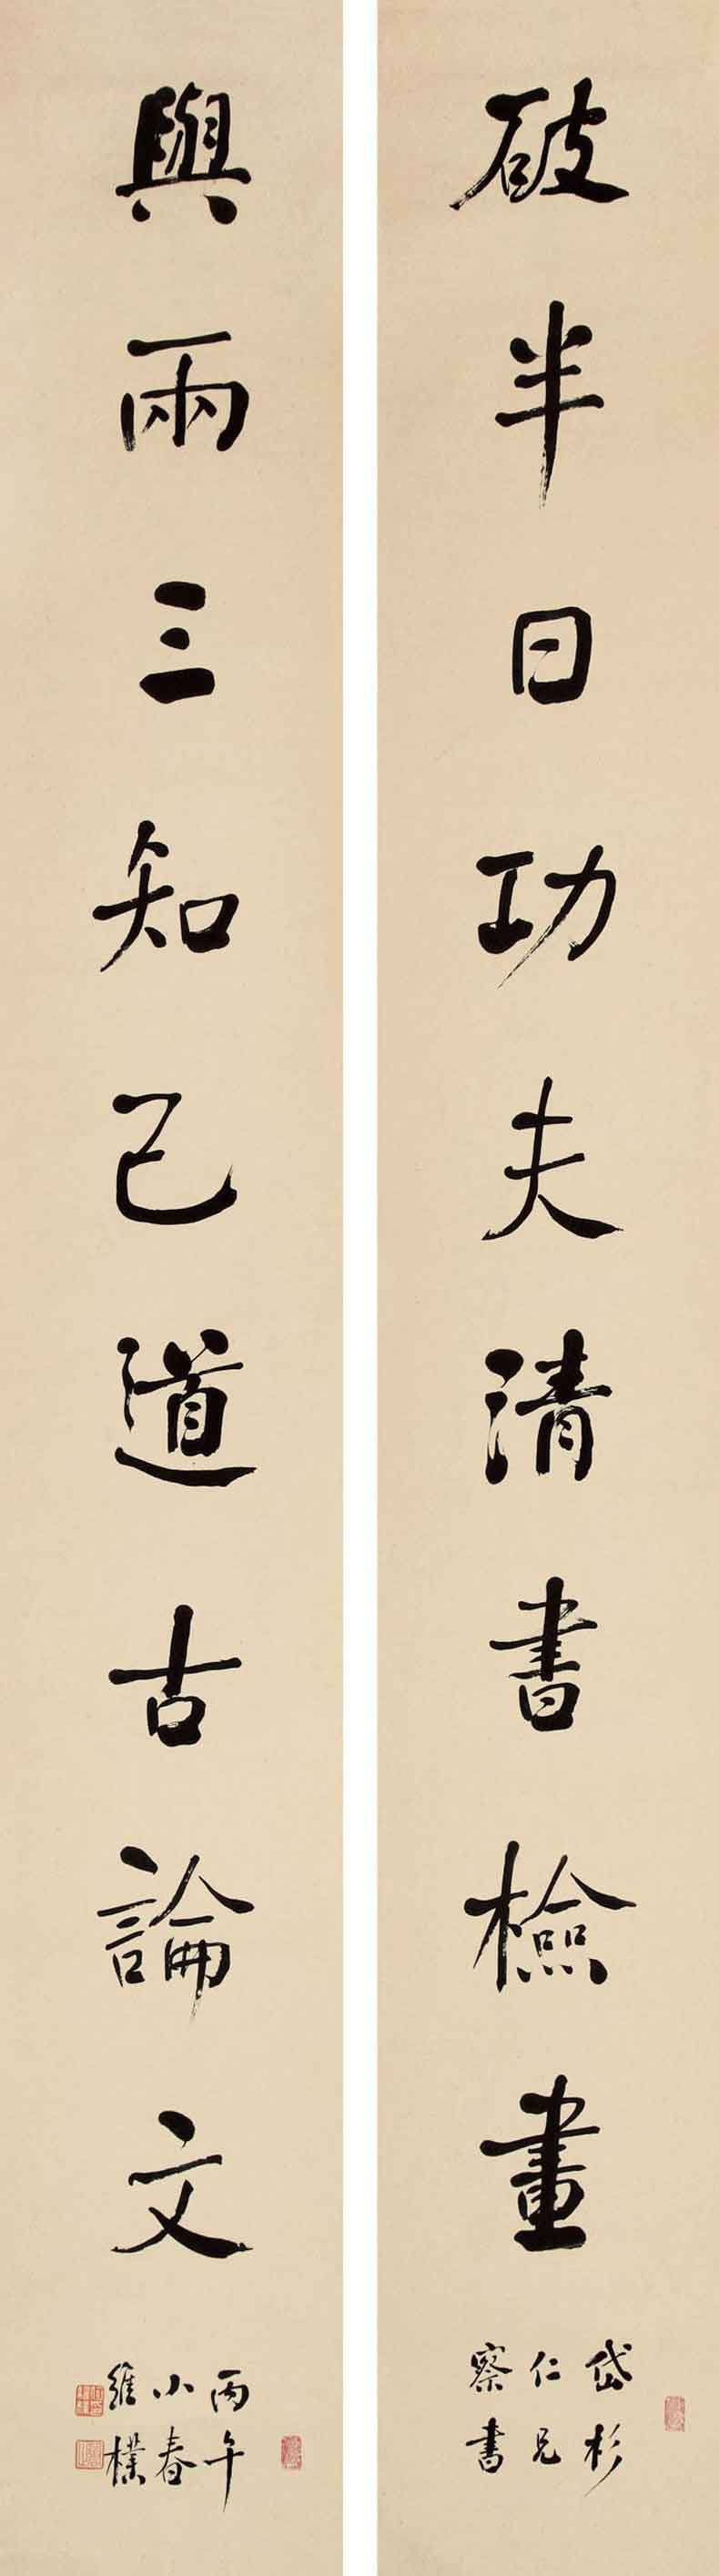 破半日功夫清書檢畫
岱杉
仁兄
察書
與兩三知己道古論文
丙午
小春
維樸